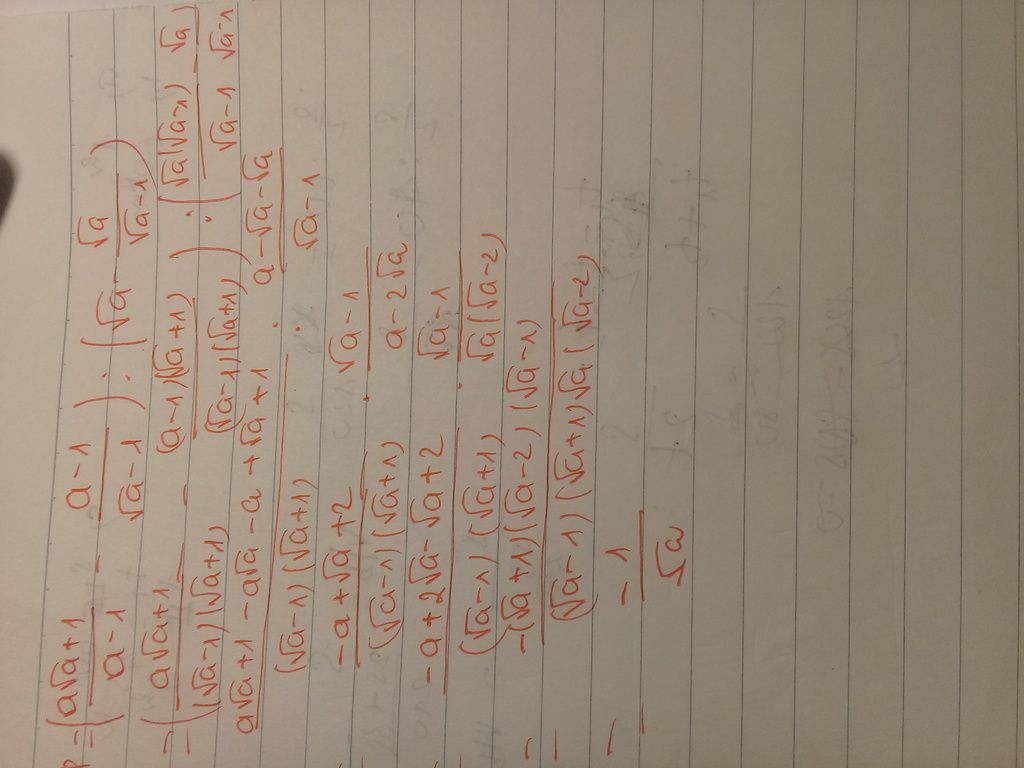 P = (a√a+1 / a-1 - a-1 / √a-1) : (√a - √a / √a-1)
= (a√a+1 / (√a-1)(√a+1) - (a-1)(√a+1) / (√a-1)(√a+1)) : (√a(√a-1) / √a-1 - √a / √a-1)
a√a+1-a√a-a+√a+1 / (√a-1)(√a+1) : a-√a-√a / √a-1
-a+√a+2 / (√a-1)(√a+1) . √a-1 / a-2√a
= -a+2√a-√a+2 / (√a-1)(√a+1) . √a-1 / √a(√a-2)
= -(√a+1)(√a-2)(√a-1) / (√a-1)(√a+1)√a(√a-2)
= -1 / √a